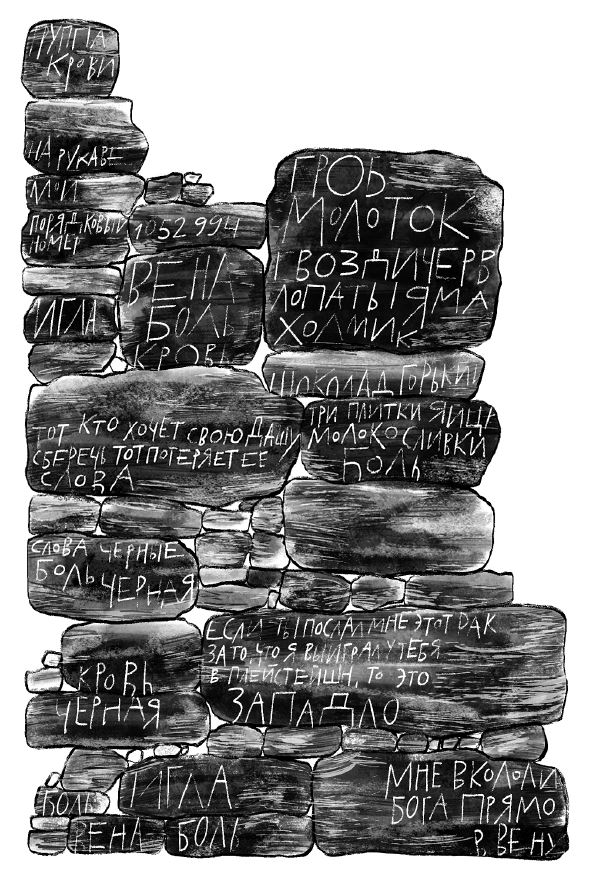 ГРУППА
КРОВИ
НА РУКАВЕ
МОЙ
ПОРЯДКОВЫЙ
НОМЕР
1052994
ИГЛА
ВЕНА
БОЛЬ
КРОВЬ
ГРОБ
МОЛОТОК
ГВОЗДИ ЧЕРВ
ЛОПАТЫ ЯМА
ХОЛМИК
ШОКОЛАД ГОРЬКИЙ
ТРИ ПЛИТКИ ЯЙЦА
МОЛОКО СЛИВКИ
БОЛЬ
ТОТ КТО ХОЧЕТ СВОЮ ДАШУ
СБЕРЕЧЬ ТОТ ПОТЕРЯЕТ ЕЕ
СЛОВА
СЛОВА ЧЕРНЫЕ
БОЛЬ ЧЕРНАЯ
ЕСЛИ ТЫ ПОСЛАЛ МНЕ ЭТОТ РАК
ЗА ТО, ЧТО Я ВЫИГРАЛ У ТЕБЯ
В ПЛЕЙСТЕЙШН, ТО ЭТО
ЗАПАДЛО
КРОВЬ
ЧЕРНАЯ
БОЛЬ
ИГЛА
ВЕНА БОЛЬ
МНЕ ВКОЛОЛИ
БОГА ПРЯМО
В ВЕНУ